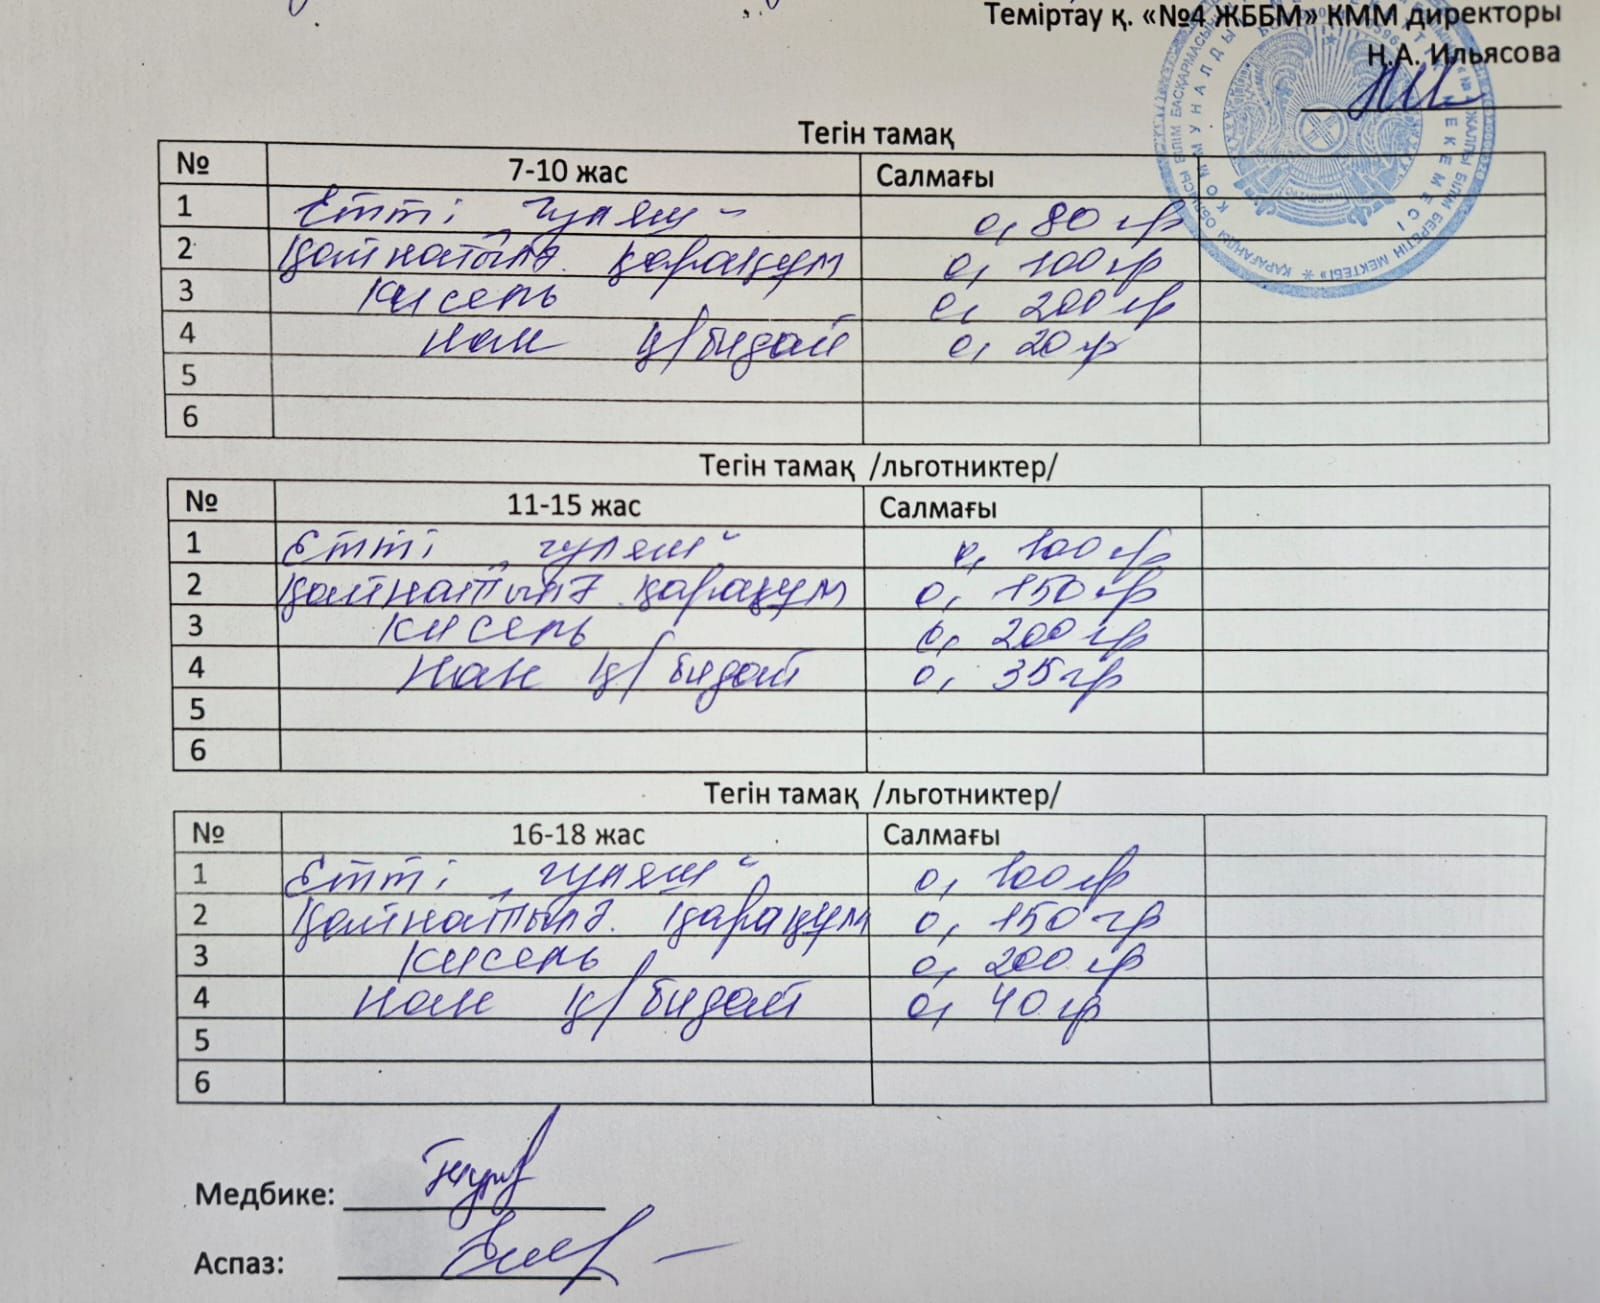 Теміртау қ. «№4 ЖББМ» КММ директоры
Н.А. Ильясова
Тегін тамақ
№ 7-10 жас Салмағы
1 Етті „гуляш" 0, 80 гр
2 Қайнатылғ. қарақұм 0, 100 гр
3 Кисель 0, 200 гр
4 Нан қ/бидай 0, 20 гр
5
6
Тегін тамақ /льготниктер/
№ 11-15 жас Салмағы
1 Етті „гуляш" 0, 100 гр
2 Қайнатылғ. қарақұм 0, 150 гр
3 Кисель 0, 200 гр
4 Нан қ/бидай 0, 35 гр
5
6
Тегін тамақ /льготниктер/
№ 16-18 жас Салмағы
1 Етті „гуляш" 0, 100 гр
2 Қайнатылғ. қарақұм 0, 150 гр
3 Кисель 0, 200 гр
4 Нан қ/бидай 0, 40 гр
5
6
Медбике:
Аспаз: